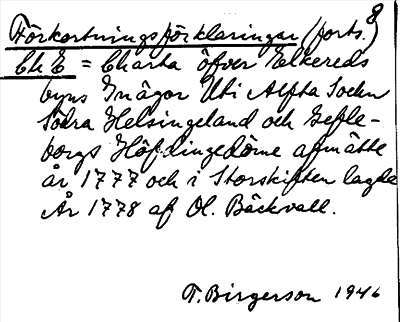 Förkortningsförklaringar (forts.) 8
Ch E = Charta öfver Elkereds
byns Inägor Uti Alfta Sockn
Södra Helsingeland och Gefle-
borgs Höfdingedöme afmätte
år 1777 och i Storskiften lagde
År 1778 af Ol. Bäckvall.
T. Birgerson 1946